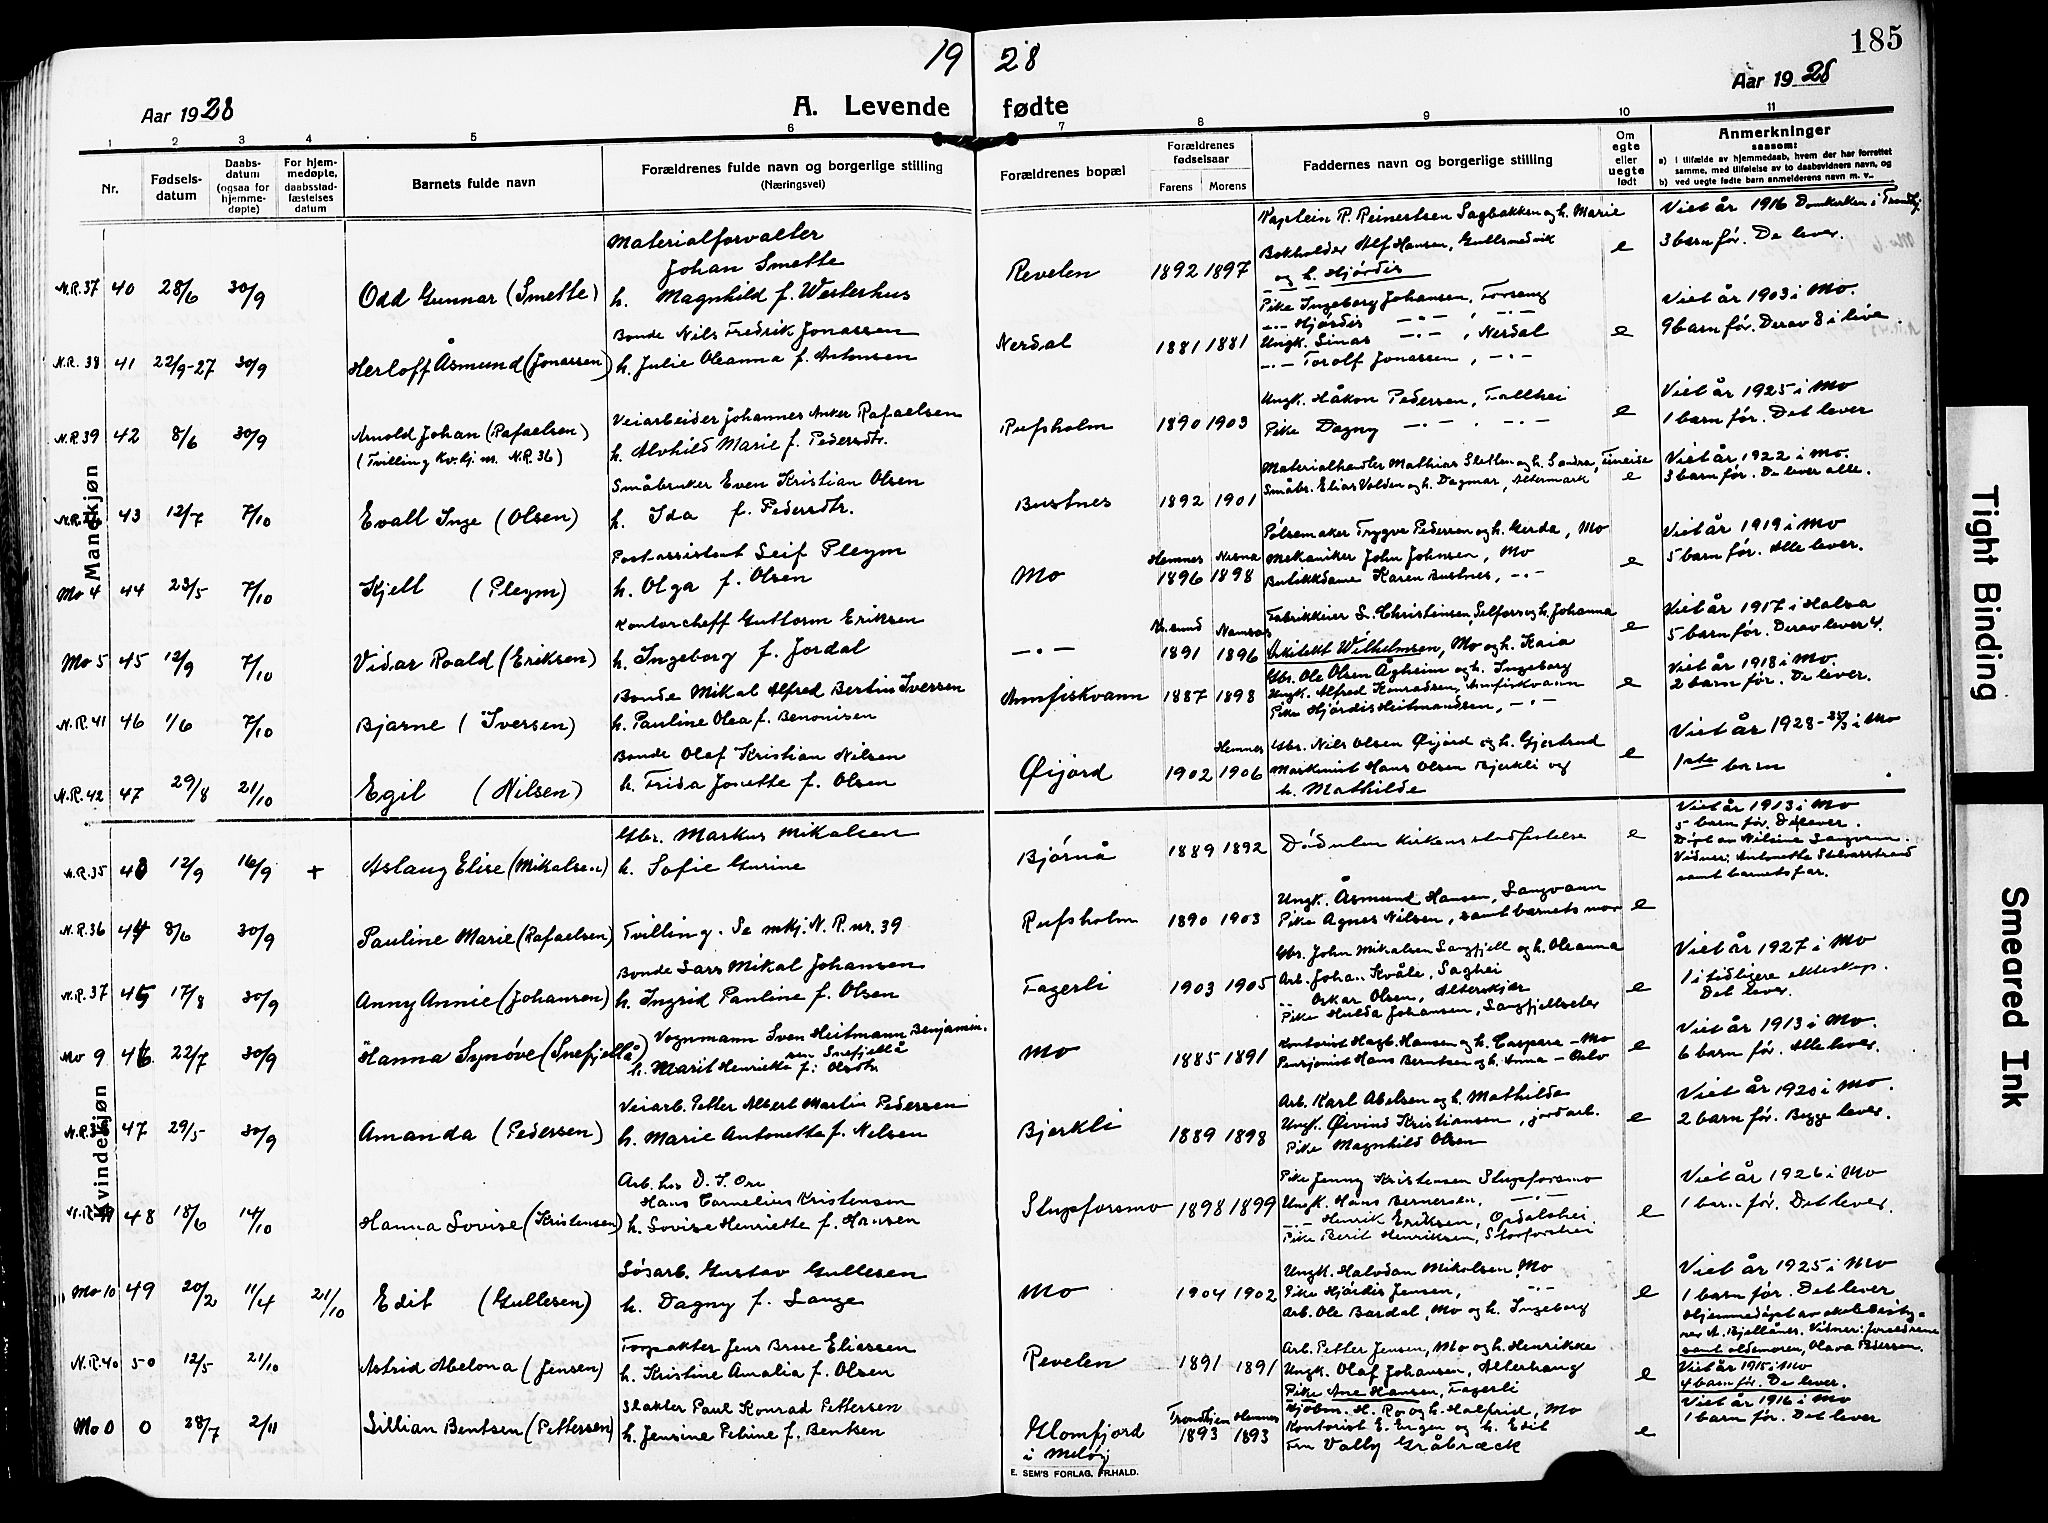 19 28
185
Aar 1928
A. Levende fødte
Aar 1928
1 2 3 4 5 6 7 8 9 10 11
Nr.
Fødsels-datum
Daabs-datum (ogsaa for hjemme-døpte)
For hjem-medøpte, daabsstad-fæstelses datum
Barnets fulde navn
Forældrenes fulde navn og borgerlige stilling (Næringsvei)
Forældrenes bopæl
Forældrenes fødselsaar
Farens Morens
Faddernes navn og borgerlige stilling
Om egte eller uegte født
Anmerkninger saasom:
a) i tilfælde av hjemmedaab, hvem der har forrettet samme, med tilføielse av to daabsvidners navn, og
b) ved uegte fødte barn anmelderens navn m. v..
Mandkjøn
N.R.37 40 28/6 30/9 Odd Gunnar (Smette)
Materialforvalter
Johan Smette
h. Magnhild f. Westerhus
Revelen 1892 1897
Kaptein R. Reinertsen Sagbakken og h. Marie
Bokholder Alf Hansen, Gullsmedvik
og h. Hjørdis
e
Viet år 1916 Domkirken i Trondhj.
3 barn før. De lever.
N.R. 38 41 22/9-27 30/9 Herloff Åsmund (Jonassen)
Bonde Nils Fredrik Jonassen
h. Julie Oleanna f. Antonsen
Nerdal 1881 1881
Pike Ingeborg Johansen, Forseng
-..- Hjørdis -..- , -..-
Ungk. Sinas -..- , Nerdal
-..- Torolf Jonassen, -..-
e
Viet år 1903 i Mo.
9 barn før. Derav 8 i live.
N.R.39 42 8/6 30/9 Arnold Johan (Rafaelsen)
(Tvilling Kv.kj. m. N.R.36)
Veiarbeider Johannes Anker Rafaelsen
h. Alvhild Marie f. Pedersdtr.
Rufsholm 1890 1903
Ungk. Håkon Pedersen, Fallhei
Pike Dagny -..- , -..-
e
Viet år 1925 i Mo
1 barn før. Det lever
43 12/7 7/10 Evall Inge (Olsen)
Småbruker Even Kristian Olsen
h. Ida f. Pedersdtr.
Bustnes 1892 1901
Materialhandler Mathias Sletten og h. Sandra, Finneide
Småbr. Elias Volden og h. Dagmar, Altermark
e
Viet år 1922 i Mo.
3 barn før. De lever alle.
Mo 4 44 23/5 7/10 Kjell (Pleym)
Postassistent Leif Pleym
h. Olga f. Olsen
Mo Hemnes 1896 Nesna 1898
Pølsemaker Trygve Pedersen og h. Gerda, Mo
Mekaniker John Johnsen, Mo
Butikkdame Karen Bustnes, -..-
e
Viet år 1919 i Mo
5 barn før. Alle lever.
Mo 5 45 12/9 7/10 Vidar Roald (Eriksen)
Kontorcheff Guttorm Eriksen
h. Ingeborg f. Jordal
-..- Kr.sund 1891 Namsos 1896
Fabrikkeier L. Christensen, Selfors og h. Johanna
Arkitekt Wilhelmsen, Mo og h. Kaia
e
Viet år 1917 i Halsa
5 barn før. Derav lever 4.
N.R.41 46 1/6 7/10 Bjarne (Iversen)
Bonde Mikal Alfred Bertin Iversen
h. Pauline Olea f. Benonisen
Annfiskvann 1887 1898
Gbr. Ole Olsen Ågheim og h. Ingeborg
Ungk. Alfred Konradsen, Annfiskvann
Pike Hjørdis Heitmandsen, -..-
e
Viet år 1918 i Mo.
2 barn før. De lever.
N.R.42 47 29/8 21/10 Egil (Nilsen)
Bonde Olaf Kristian Nilsen
h. Frida Jonette f. Olsen
Øijord 1902 Hemnes 1906
Gbr. Nils Olsen Øijord og h. Gjertrud
Maskinist Hans Olsen Bjerkli og
h. Mathilde
e
Viet år 1928 - 25/3 i Mo
1ste barn
Kvindekjøn
N.R.35 43 12/9 16/9 + Aslaug Elise (Mikalsen)
Gbr. Markus Mikalsen
h. Sofie Gurine
Bjørnå 1889 1892
Død uten kirkens stadfestelse
e
Viet år 1913 i Mo
5 barn før. De lever.
Døpt av Nilsine Langvann.
Vidner: Antonette Stelvarstrand
samt barnets far.
N.R.36 44 8/6 30/9 Pauline Marie (Rafaelsen)
Tvilling. Se mkj. N.R. nr. 39
Rufsholm 1890 1903
Ungk. Åsmund Hansen, Langvann
Pike Agnes Nilsen, samt barnets mor
e
N.R.37 45 17/8 30/9 Anny Annie (Johansen)
Bonde Lars Mikal Johansen
h. Ingrid Pauline f. Olsen
Fagerli 1903 1905
Gbr. John Mikalsen Langfjell og h. Oleanna
Arb. Joha.. Kvåle, Saghei
.. Oskar Olsen, Alterskjær
Pike Hulda Johansen, Langfjellseter
e
Viet år 1927 i Mo
1 i tidligere ekteskap.
Det lever.
Mo 9 46 22/7 30/9 Hanna Synøve (Snefjellå)
Vognmann Sven Heitmann Benjamin-
sen Snefjellå
h. Marit Henrikke f. Olsdtr
Mo 1885 1891
Kontorist Hagb. Hansen og h. Caspara - Mo
Pensjonist Hans Berntsen og h. Anna - Oslo
e
Viet år 1913 i Mo.
6 barn før. Alle lever.
N.R.38 47 29/5 30/9 Amanda (Pedersen)
Veiarb. Petter Albert Martin Pedersen
h. Marie Antonette f. Nilsen
Bjerkli 1889 1898
Arb. Karl Abelsen og h. Mathilde
Ungk. Øivind Kristiansen, jordarb.
Pike Magnhild Olsen
e
Viet år 1920 i Mo.
2 barn før. Begge lever.
48 18/6 14/10 Hanna Lovise (Kristensen)
Arb. hos D.I. Ore
Hans Cornelius Kristensen
h. Lovise Henriette f. Hansen
Stupforsmo 1898 1899
Pike Jenny Kristensen Stupforsmo
Ungk. Hans Bernersen, -..-
-..- Henrik Eriksen, Opdalshei.
Pike Berit Henriksen, Storforshei
e
Viet år 1926 i Mo
1 barn før. Det lever.
Mo 10 49 20/2 11/4 21/10 Edit (Gullesen)
Løsarb. Gustav Gullesen
h. Dagny f. Lange
Mo 1904 1902
Ungk. Halvdan Mikalsen, Mo
Pike Hjørdis Jensen, -..-
Arb. Ole Bardal, Mo og h. Ingeborg
e
Viet år 1925 i Mo
1 barn før. Det lever
Hjemmedøpt av skolebesty-
rer A. Bjellånes. Vidner: foreldrene
samt oldemoren, Olava Pedersen.
N.R.40 50 12/5 21/10 Astrid Abelona (Jensen)
Forpakter Jens Brose Eliassen
h. Kristine Amalia f. Olsen
Revelen 1891 1891
Arb. Petter Jensen, Mo og h. Henrikke
Ungk. Olaf Johansen, Alterhaug
Pike Ane Hansen, Fagerli
e
Viet år 1915 i Mo
4 barn før. De lever.
Mo 0 0 28/7 2/11 Lillian Bentsen (Pettersen)
Slakter Paul Konrad Pettersen
h. Jensine Petrine f. Bentsen
Glomfjord
i Meløy
Trondhjem 1893 Hemnes 1893
Kjøbm. H. Ro og h. Halfrid, Mo
Kontorist E. Enger og h. Edit
Fru Valby Gråbræck
e
Viet år 1916 i Mo
1 barn før. Det lever
E. SEM'S FORLAG, FR.HALD.
Tight Binding
Smeared Ink